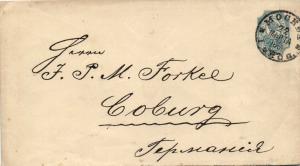 МОСКВА
Herrn
J. P. M. Forkel
Coburg
Германія